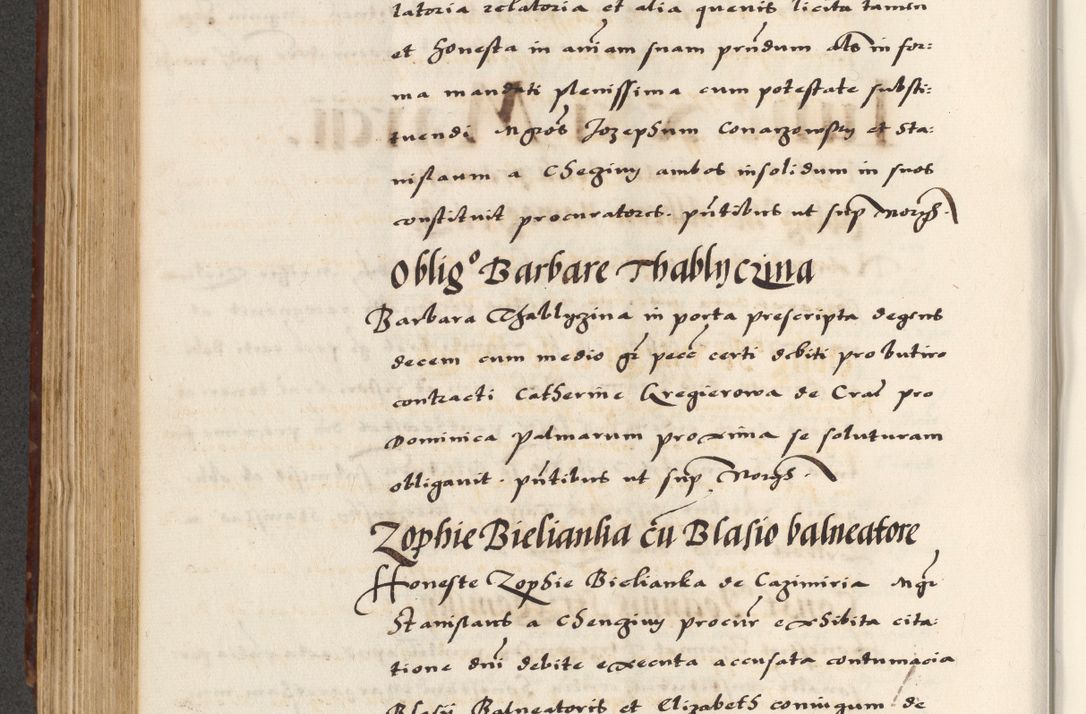 latoria relatoria et alia quevis licita tamen
et honesta in aniam suam prndum Als in for:
ma mandati plenissima cum potestate substi:
tuendi Mgros Jozephum Conarzowsky et Sta:
nislaum a Cheginy ambos insolidum in suos
constituit procuratores. pntibus ut sup Norys.
Obligo Barbare Thablyczina
Barbara Thablyczina in porta prescripta degens
decem cum medio gr pecc certi debiti pro butiro
contracti Catherine Kregierowa de Crac pro
Dominica palmarum proxima se soluturam
obligavit. pntibus ut sup Norys.
Zophie Bielianka cu Blasio balneatore
Honeste Zophie Bielianka de Cazimiria Mgr
Stanislaus a Chenginy procur exhibita cita:
tione dni debite executa accusata contumacia
Blasii Balneatoris et Elizabeth coniugum de